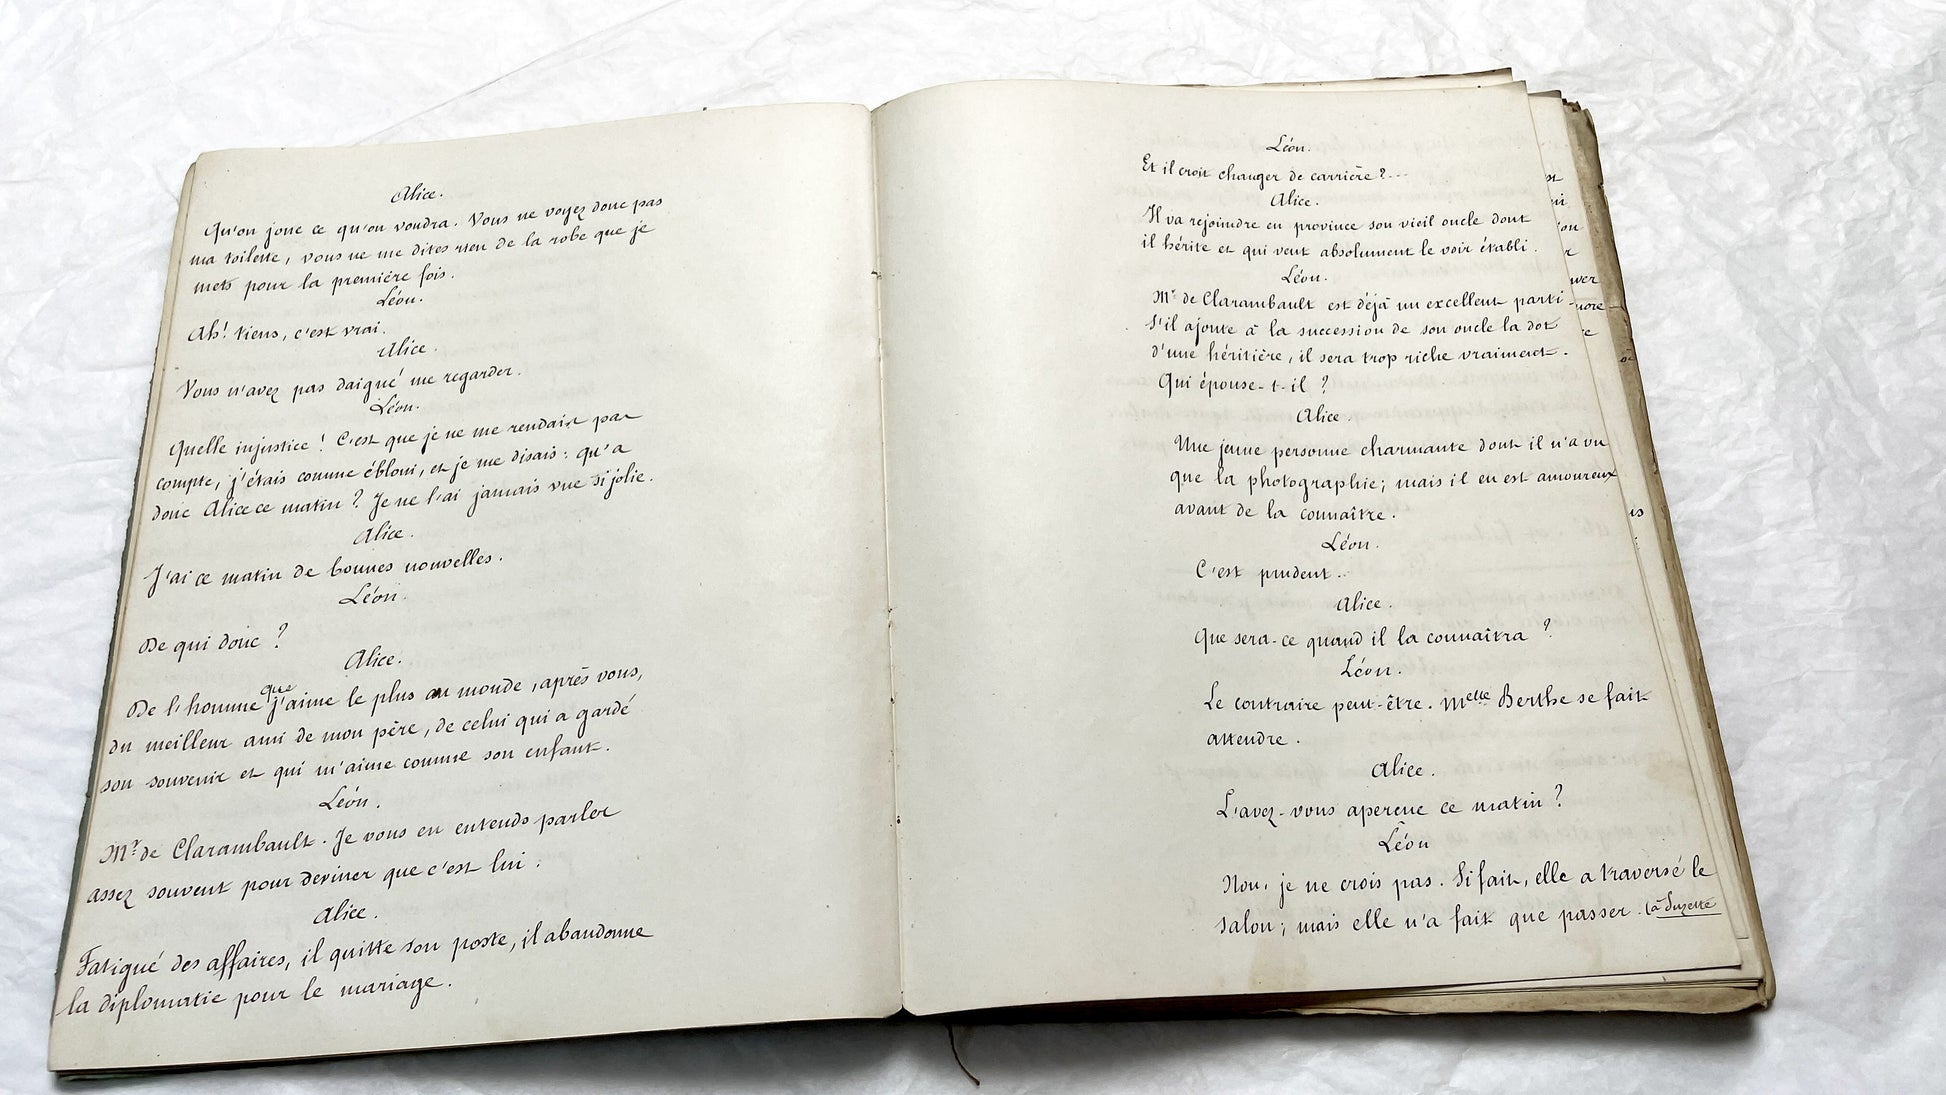 Alice.
Qu'on joue ce qu'on voudra. Vous ne voyez donc pas
ma toilette, vous ne me dites rien de la robe que je
mets pour la première fois.
Léon.
Ah! tiens, c'est vrai.
Alice.
Vous n'avez pas daigné me regarder.
Léon.
Quelle injustice! C'est que je ne me rendais pas
compte, j'étais comme ébloui, et je me disais: qu'a
donc Alice ce matin? Je ne l'ai jamais vue si jolie.
Alice.
J'ai ce matin de bonnes nouvelles.
Léon.
De qui donc?
Alice.
De l'homme que j'aime le plus au monde, après vous,
du meilleur ami de mon père, de celui qui a gardé
son souvenir et qui m'aime comme son enfant.
Léon.
Mr. de Clarambault. Je vous en entends parler
assez souvent pour deviner que c'est lui.
Alice.
Fatigué des affaires, il quitte son poste, il abandonne
la diplomatie pour le mariage.
Léon.
Et il croit changer de carrière?...
Alice.
Il va rejoindre en province son vieil oncle dont
il hérite et qui veut absolument le voir établi.
Léon.
Mr. de Clarambault est déjà un excellent parti
s'il ajoute à la succession de son oncle la dot
d'une héritière, il sera trop riche vraiment.
Qui épouse-t-il?
Alice.
Une jeune personne charmante dont il n'a vu
que la photographie; mais il en est amoureux
avant de la connaître.
Léon.
C'est prudent..
Alice.
Que sera-ce quand il la connaîtra?
Léon.
Le contraire peut-être. Melle Berthe se fait
attendre.
Alice.
L'avez-vous aperçue ce matin?
Léon
Non, je ne crois pas. Si fait, elle a traversé le
salon; mais elle n'a fait que passer. (à Suzette